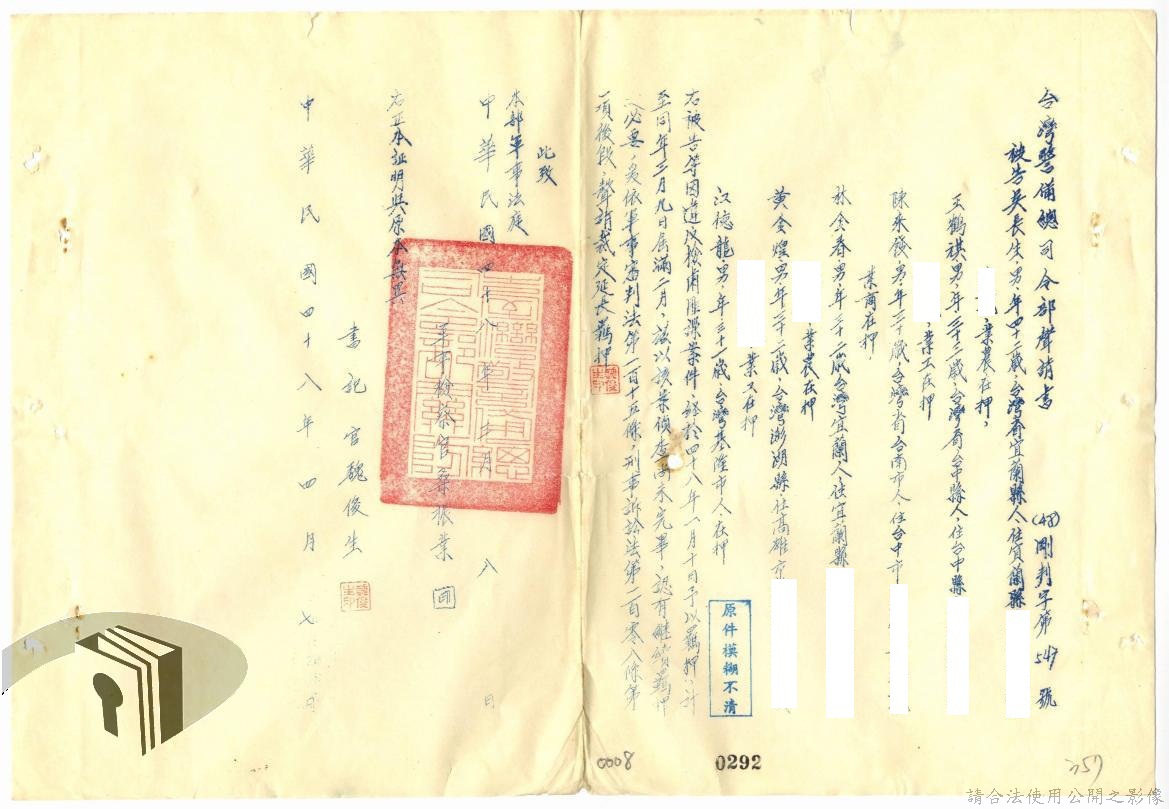 台灣警備總司令部聲請書
(48)剛判字第547號
被告吳長生,男,年四十二歲,台灣省宜蘭縣人,住宜蘭縣
,業農,在押,
王鶴祺,男,年三十三歲,台灣省台中縣人,住台中縣
,業工在押
陳來發,男,年三十歲,台灣省台南市人,住台中市
業商在押
林金春,男,年三十二歲台灣宜蘭人,住宜蘭縣
,業農在押
黃金煌,男,年三十二歲,台灣澎湖縣,住高雄市
,業工在押
江德龍,男,年三十一歲,台灣基隆市人,在押
右被告等因違反檢肅匪諜案件,經於四十八年一月十日予以羈押,計
至同年三月九日屆滿二月,茲以該案偵查尚未完畢,認有繼續羈押
之必要,爰依軍事審判法第一百十五條,刑事訴訟法第一百零八條第
一項後段,聲請裁定延長羈押
此致
本部軍事法庭
中華民國四十八年 月 日
軍事檢察官 振業
右正本証明與原本無異
書記官魏俊生
中華民國四十八年四月七日
魏俊生印
原件模糊不清
0008
0292
257
請合法使用公開之影像